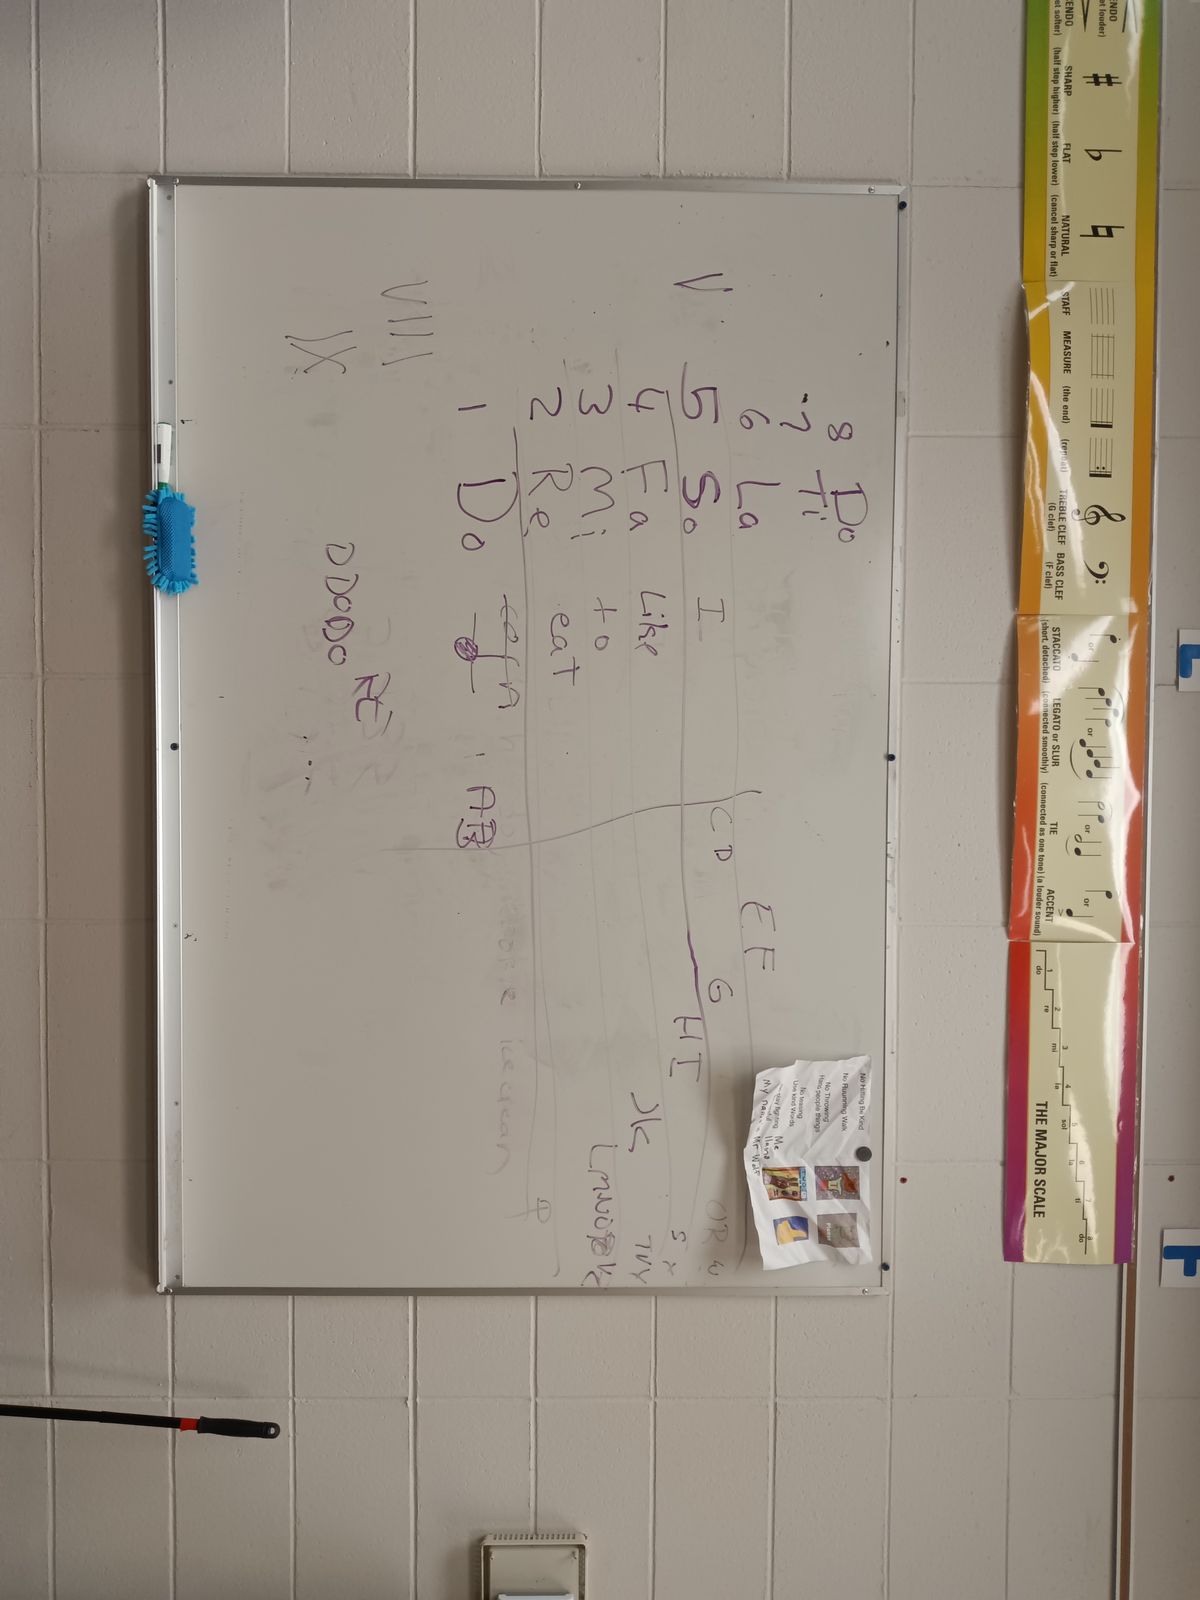 ENDO
(get louder)
ENDO
(get softer)
SHARP
(half step higher)
FLAT
(half step lower)
NATURAL
(cancel sharp or flat)
STAFF
MEASURE
(the end)
(repeat)
TREBLE CLEF
(G clef)
BASS CLEF
(F clef)
or
STACCATO
(short, detached)
or
LEGATO or SLUR
(connected smoothly)
or
TIE
(connected as one tone)
or
ACCENT
(a louder sound)
1 2 3 4 5 6 7 8
do re mi fa sol la ti do
THE MAJOR SCALE
L
F
No Hitting Be Kind
No Ruunning Walk
No Throwing
Hans people things
No teasing
Use kind Words
play fighting
Me llamo
My name Mr Wolf
8 Do
7 Ti
6 La
V 5 So I
4 Fa Like
3 Mi to
2 Re eat
1 Do
C D
E F
G
H I
JK
S
A B
ice cream
VIII
IX
DDODO RE ...